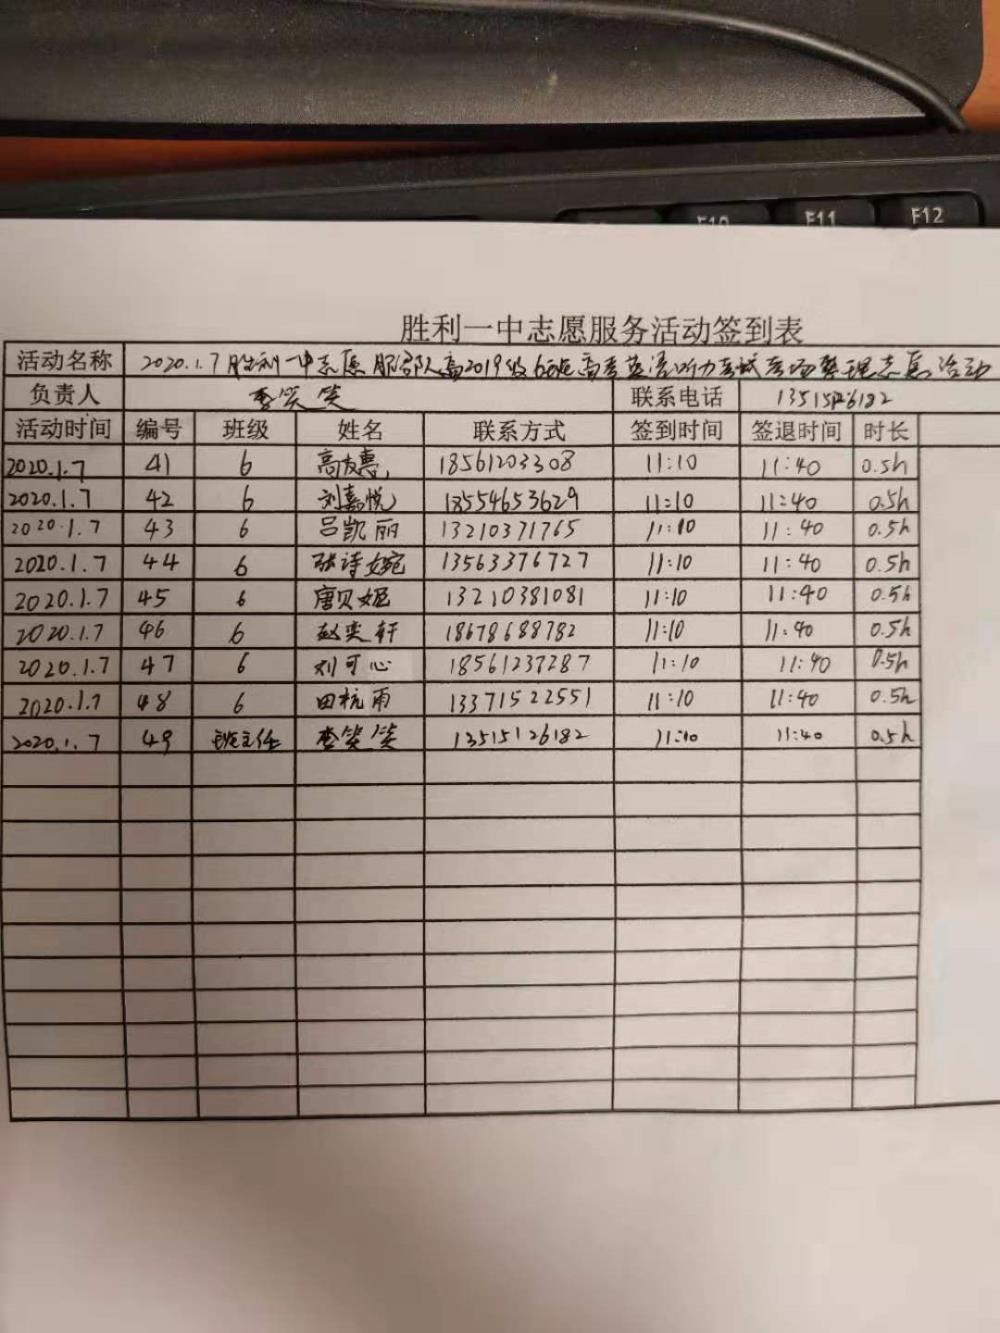 F10 F11 F12
胜利一中志愿服务活动签到表
活动名称 2020.1.7胜利一中志愿服务队高2019级6班高考英语听力考试考场整理志愿活动
负责人 李笑笑 联系电话 13515126182
活动时间 编号 班级 姓名 联系方式 签到时间 签退时间 时长
2020.1.7 41 6 高友惠 18561203308 11:10 11:40 0.5h
2020.1.7 42 6 刘嘉悦 18554653629 11:10 11:40 0.5h
2020.1.7 43 6 吕凯丽 13210371765 11:10 11:40 0.5h
2020.1.7 44 6 张诗婉 13563376727 11:10 11:40 0.5h
2020.1.7 45 6 唐贝妮 13210381081 11:10 11:40 0.5h
2020.1.7 46 6 赵奕轩 18678688782 11:10 11:40 0.5h
2020.1.7 47 6 刘可心 18561237287 11:10 11:40 0.5h
2020.1.7 48 6 田杭雨 13371522551 11:10 11:40 0.5h
2020.1.7 49 班主任 李笑笑 13515126182 11:10 11:40 0.5h